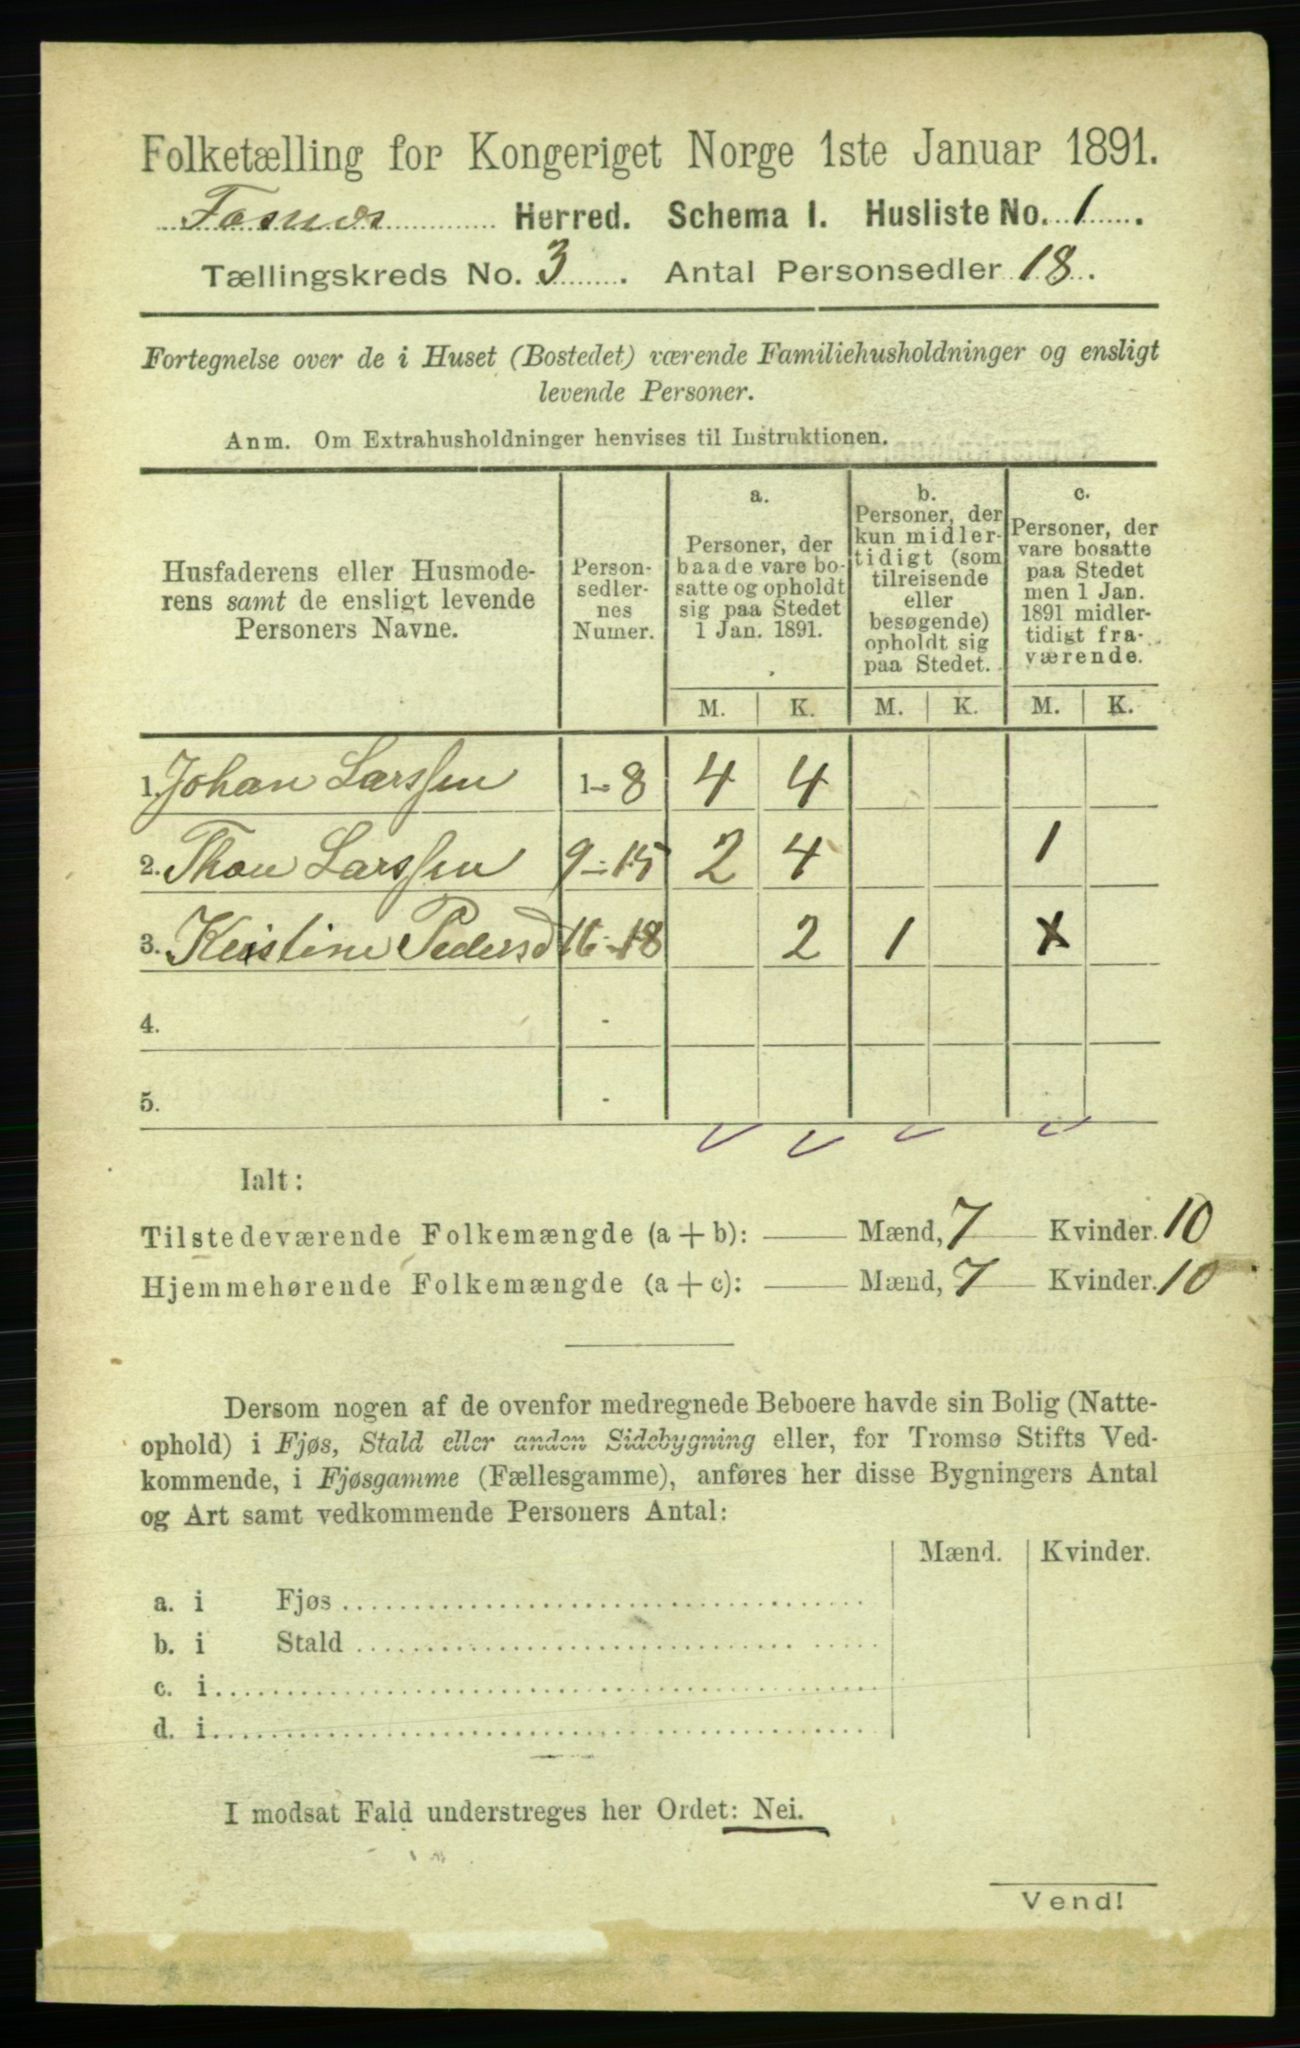 Folketælling for Kongeriget Norge 1ste Januar 1891.
Fosnes Herred. Schema I. Husliste No. 1.
Tællingskreds No. 3. Antal Personsedler 18.
Fortegnelse over de i Huset (Bostedet) værende Familiehusholdninger og ensligt
levende Personer.
Anm. Om Extrahusholdninger henvises til Instruktionen.
Husfaderens eller Husmode-
rens samt de ensligt levende
Personers Navne.
Person-
sedler-
nes
Numer.
a.
Personer, der
baade vare bo-
satte og opholdt
sig paa Stedet
1 Jan. 1891.
b.
Personer, der
kun midler-
tidigt (som
tilreisende
eller
besøgende)
opholdt sig
paa Stedet.
c.
Personer, der
vare bosatte
paa Stedet
men 1 Jan.
1891 midler-
tidigt fra-
værende.
M. K. M. K. M. K.
1. Johan Larssen 1-8 4 4
2. Thon Larssen 9-15 2 4 1
3. Kristine Pedersd 16-18 2 1
4.
5.
Ialt:
Tilstedeværende Folkemængde (a + b): Mænd, 7 Kvinder. 10
Hjemmehørende Folkemængde (a + c): Mænd, 7 Kvinder. 10
Dersom nogen af de ovenfor medregnede Beboere havde sin Bolig (Natte-
ophold) i Fjøs, Stald eller anden Sidebygning eller, for Tromsø Stifts Ved-
kommende, i Fjøsgamme (Fællesgamme), anføres her disse Bygningers Antal
og Art samt vedkommende Personers Antal:
Mænd. Kvinder.
a. i Fjøs
b. i Stald
c. i
d. i
I modsat Fald understreges her Ordet: Nei.
Vend!